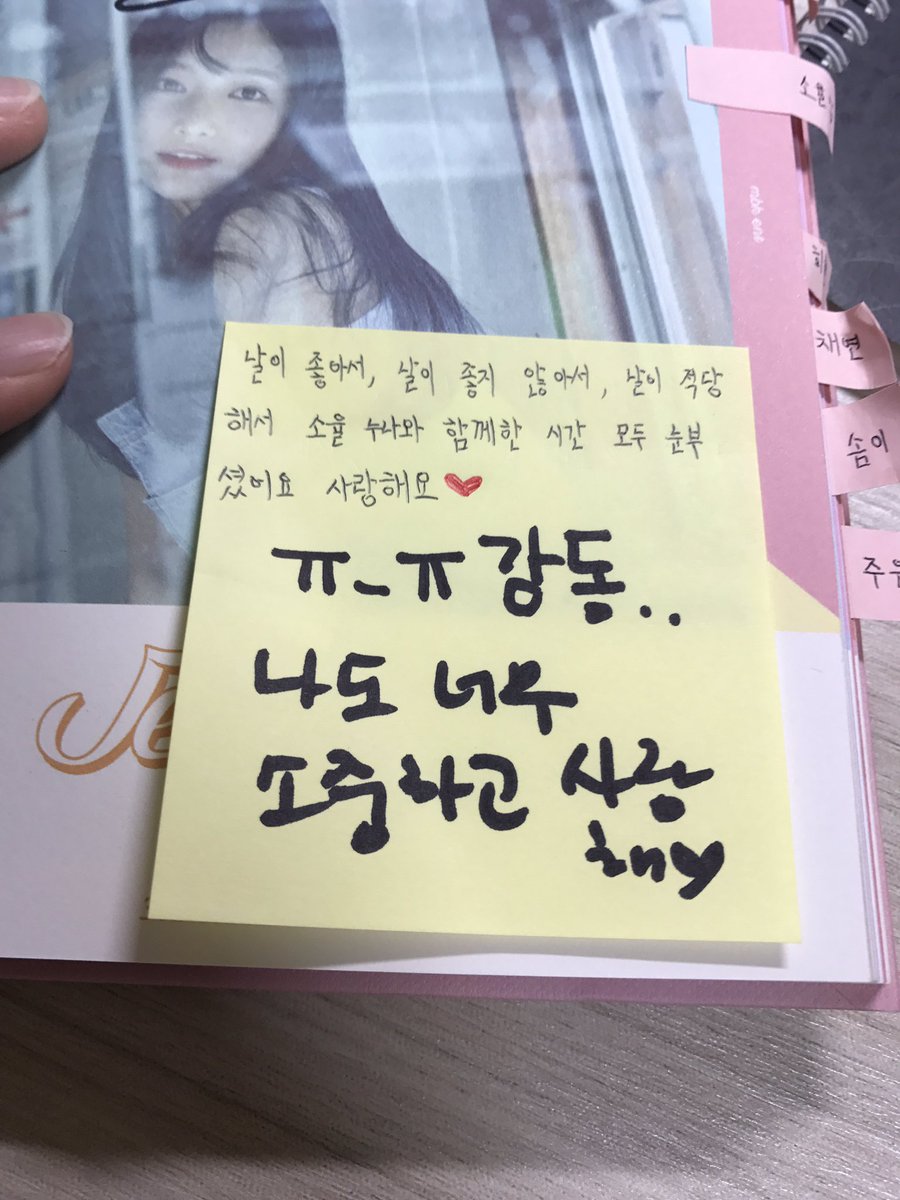 소율
채연
솜이
주원
날이 좋아서, 날이 좋지 않아서, 날이 적당
해서 소율 누나와 함께한 시간 모두 눈부
셨어요 사랑해요❤
ㅠ_ㅠ 감동..
나도 너무
소중하고 사랑
해♥